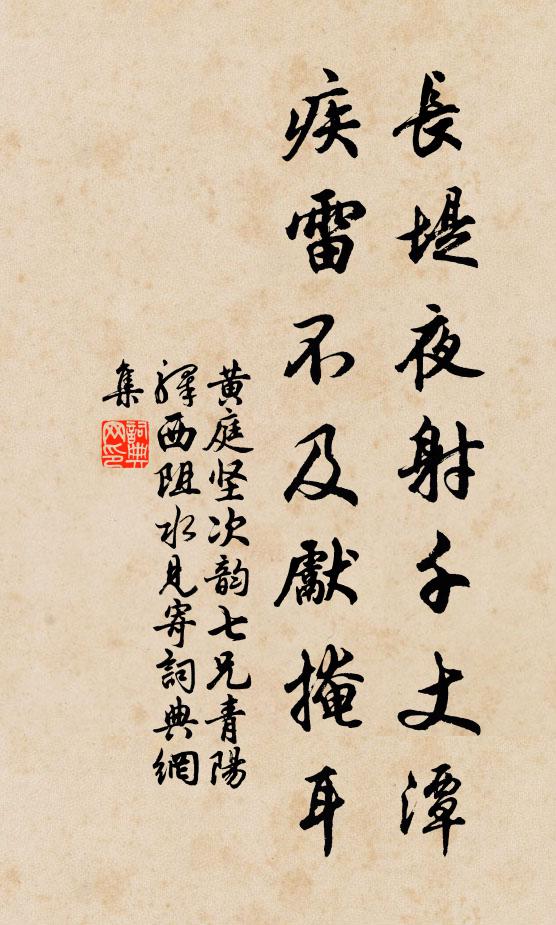 長堤夜射千丈潭
疾雷不及獻掩耳
黄庭坚次韵七兄青陽
驛西阻水見寄詞典網
集
詞典
网印